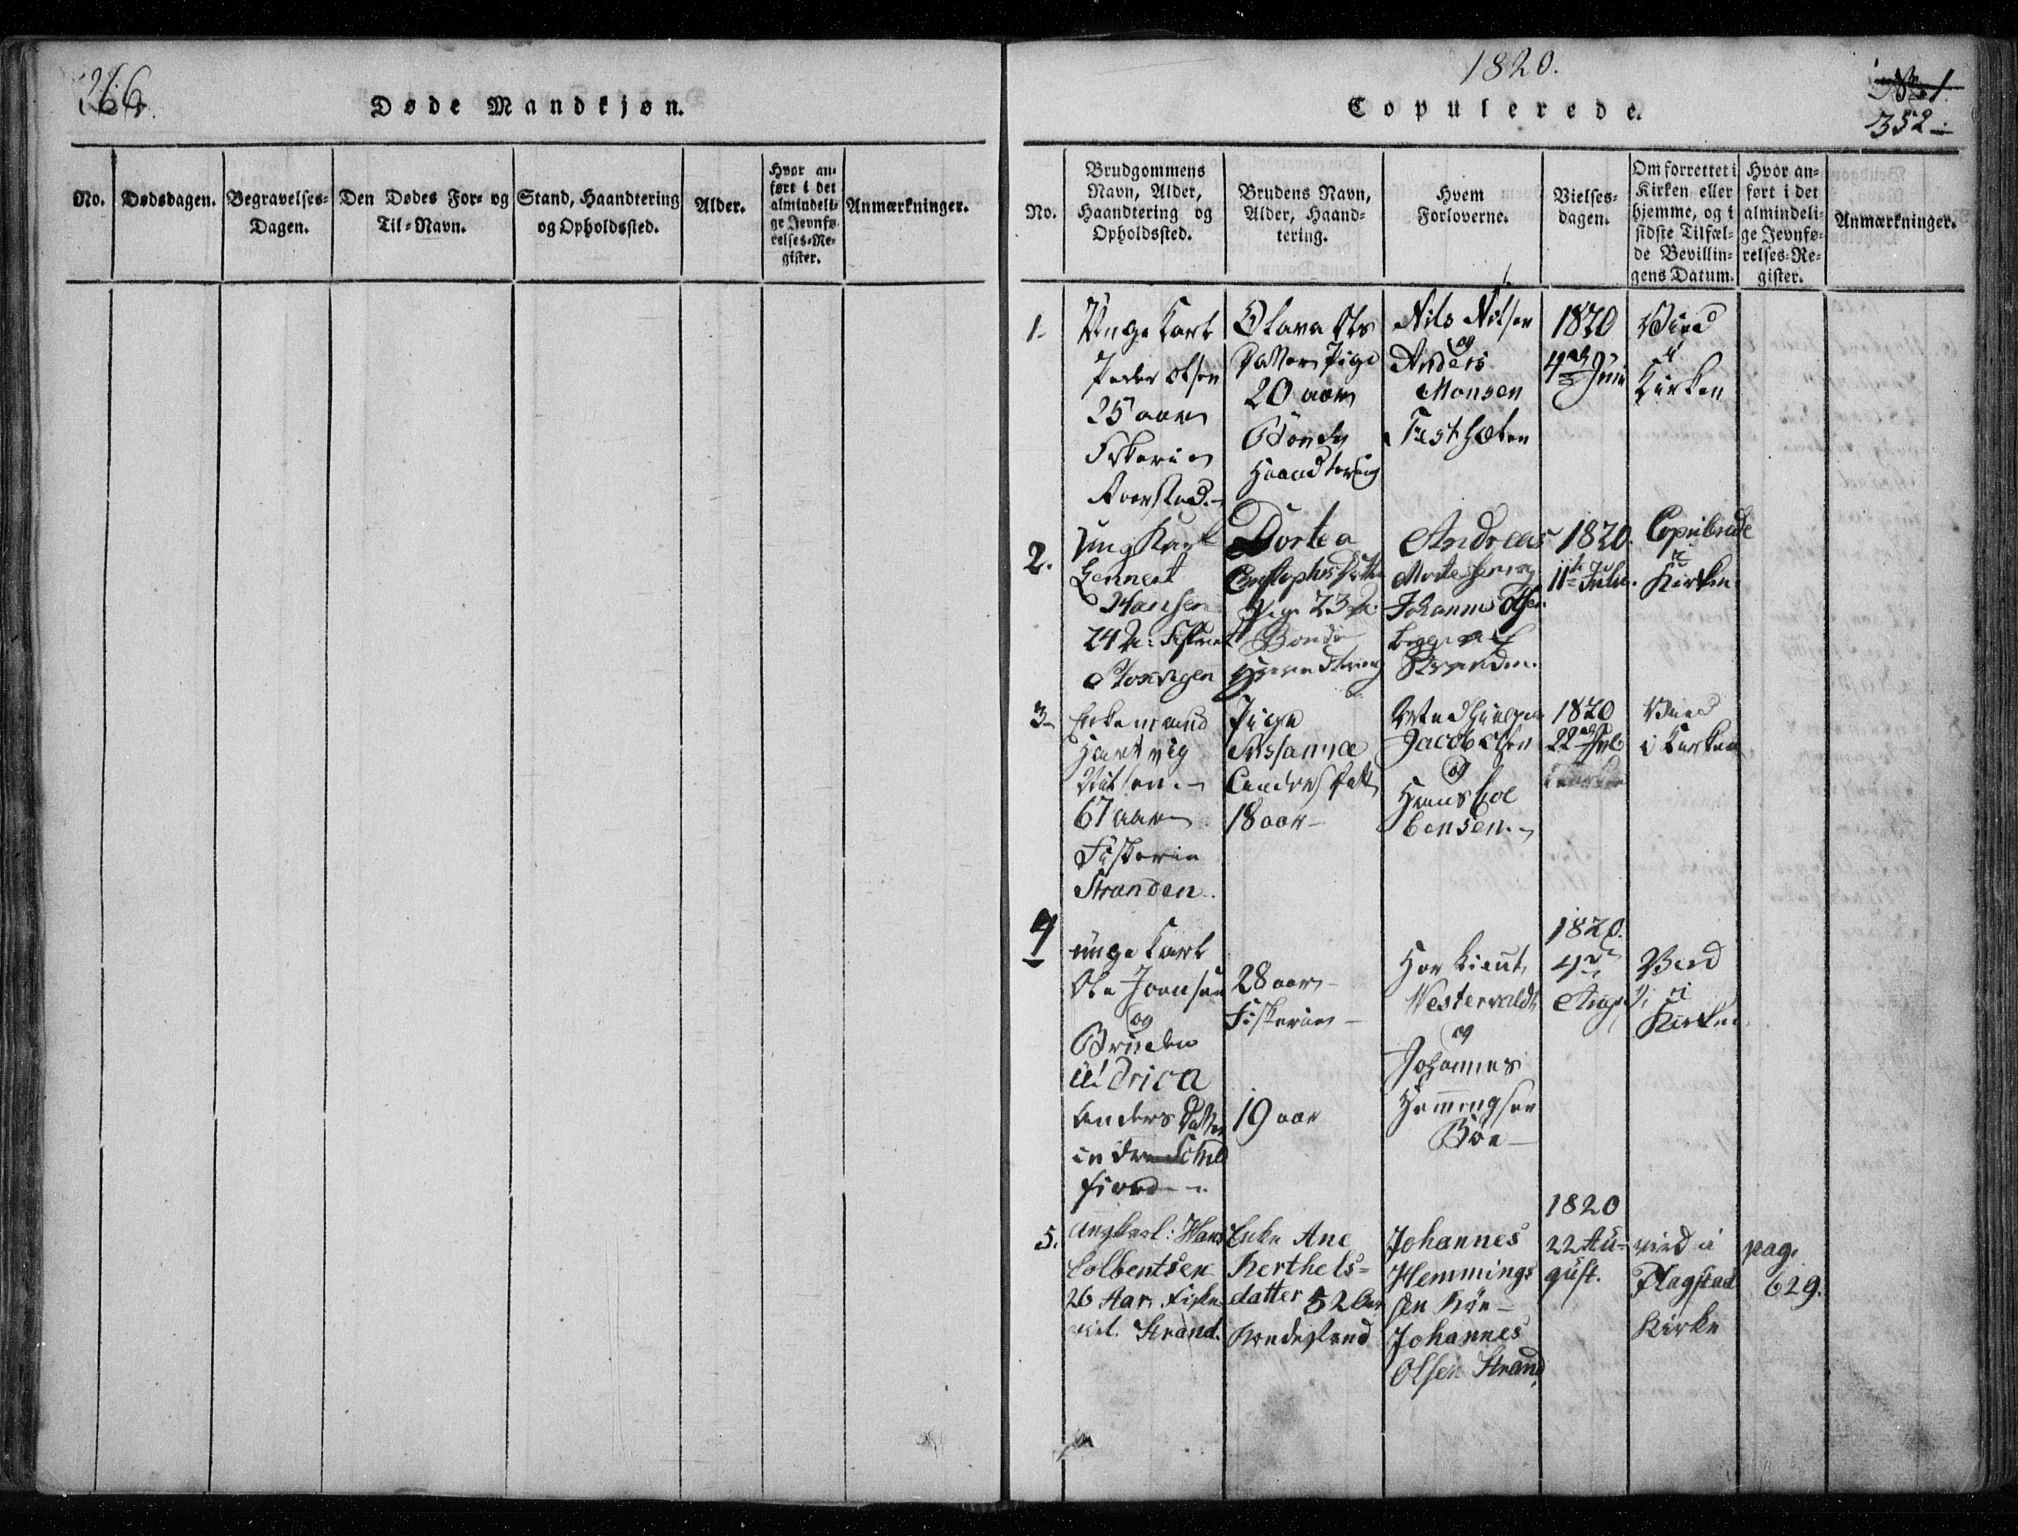 266.
Døde Mandkjøn.
No.
Dødsdagen.
Begravelses-
Dagen.
Den Dødes For- og
Til-Navn.
Stand, Haandtering
og Opholdssted.
Alder.
Hvor an-
ført i det
almindeli-
ge Jevnfø-
relses-Re-
gister.
Anmærkninger.
1820.
Copulerede.
352
No.
Brudgommens
Navn, Alder,
Haandtering og
Opholdssted.
Brudens Navn,
Alder, Haand-
tering.
Hvem
Forloverne.
Vielses-
dagen.
Om forrettet i
Kirken eller
hjemme, og i
sidste Tilfæl-
de Bevillin-
gens Datum.
Hvor an-
ført i det
almindeli-
ge Jevnfø-
relses-Re-
gister.
Anmærkninger.
1
Unge Karl
Peder Olsen
25 aar
Fiskerie
Olava Ols
Datter Pige
20 aar
Bonde
Haandtering
Nils Nilsen
og
Anders
Monsen
1820
4de Juni
Vied
i
Kirken
2.
Ung Karl
Gennert
Hansen
24
Dortea
Pige 23
Bonde
Haandtering
Andreas
Johannes Olsen
Stranden.
1820.
11te Julii.
Copulerede
i
Kirken.
3
Enkemand
Hartvig
Nilsen
67 aar
Fiskerie
Stranden.
Pige
Susanna
Anders Datt
18 aar
Jacob Olsen
og
Hans Col
bensen
1820
22 Jul
Vied
i Kirken
4
unge Karl
Ole Joensen
og
Bruden
Uldrica
Anders Datter
fiord
28 aar
Fiskerie
19 aar
Her Lieut.
Westervaldt
og
Johannes
Hemmingsen
Böe
1820.
4de
Aug.
Vied
i
Kirken.
5.
Ungkarl: Hans
Colbentsen
26 Aar. Fiske
Strand.
Enke Ane
Berthels-
datter 52 Aar
Bondestand
Johannes
Hemmings
sen Böe
Johannes
Olsen Strand.
1820
22 Au-
gust.
vied i
Flagstad
Kirke
pag.
629.